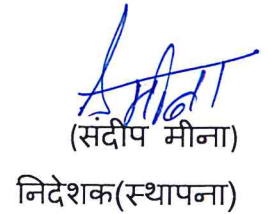 (संदीप मीना)
निदेशक(स्थापना)